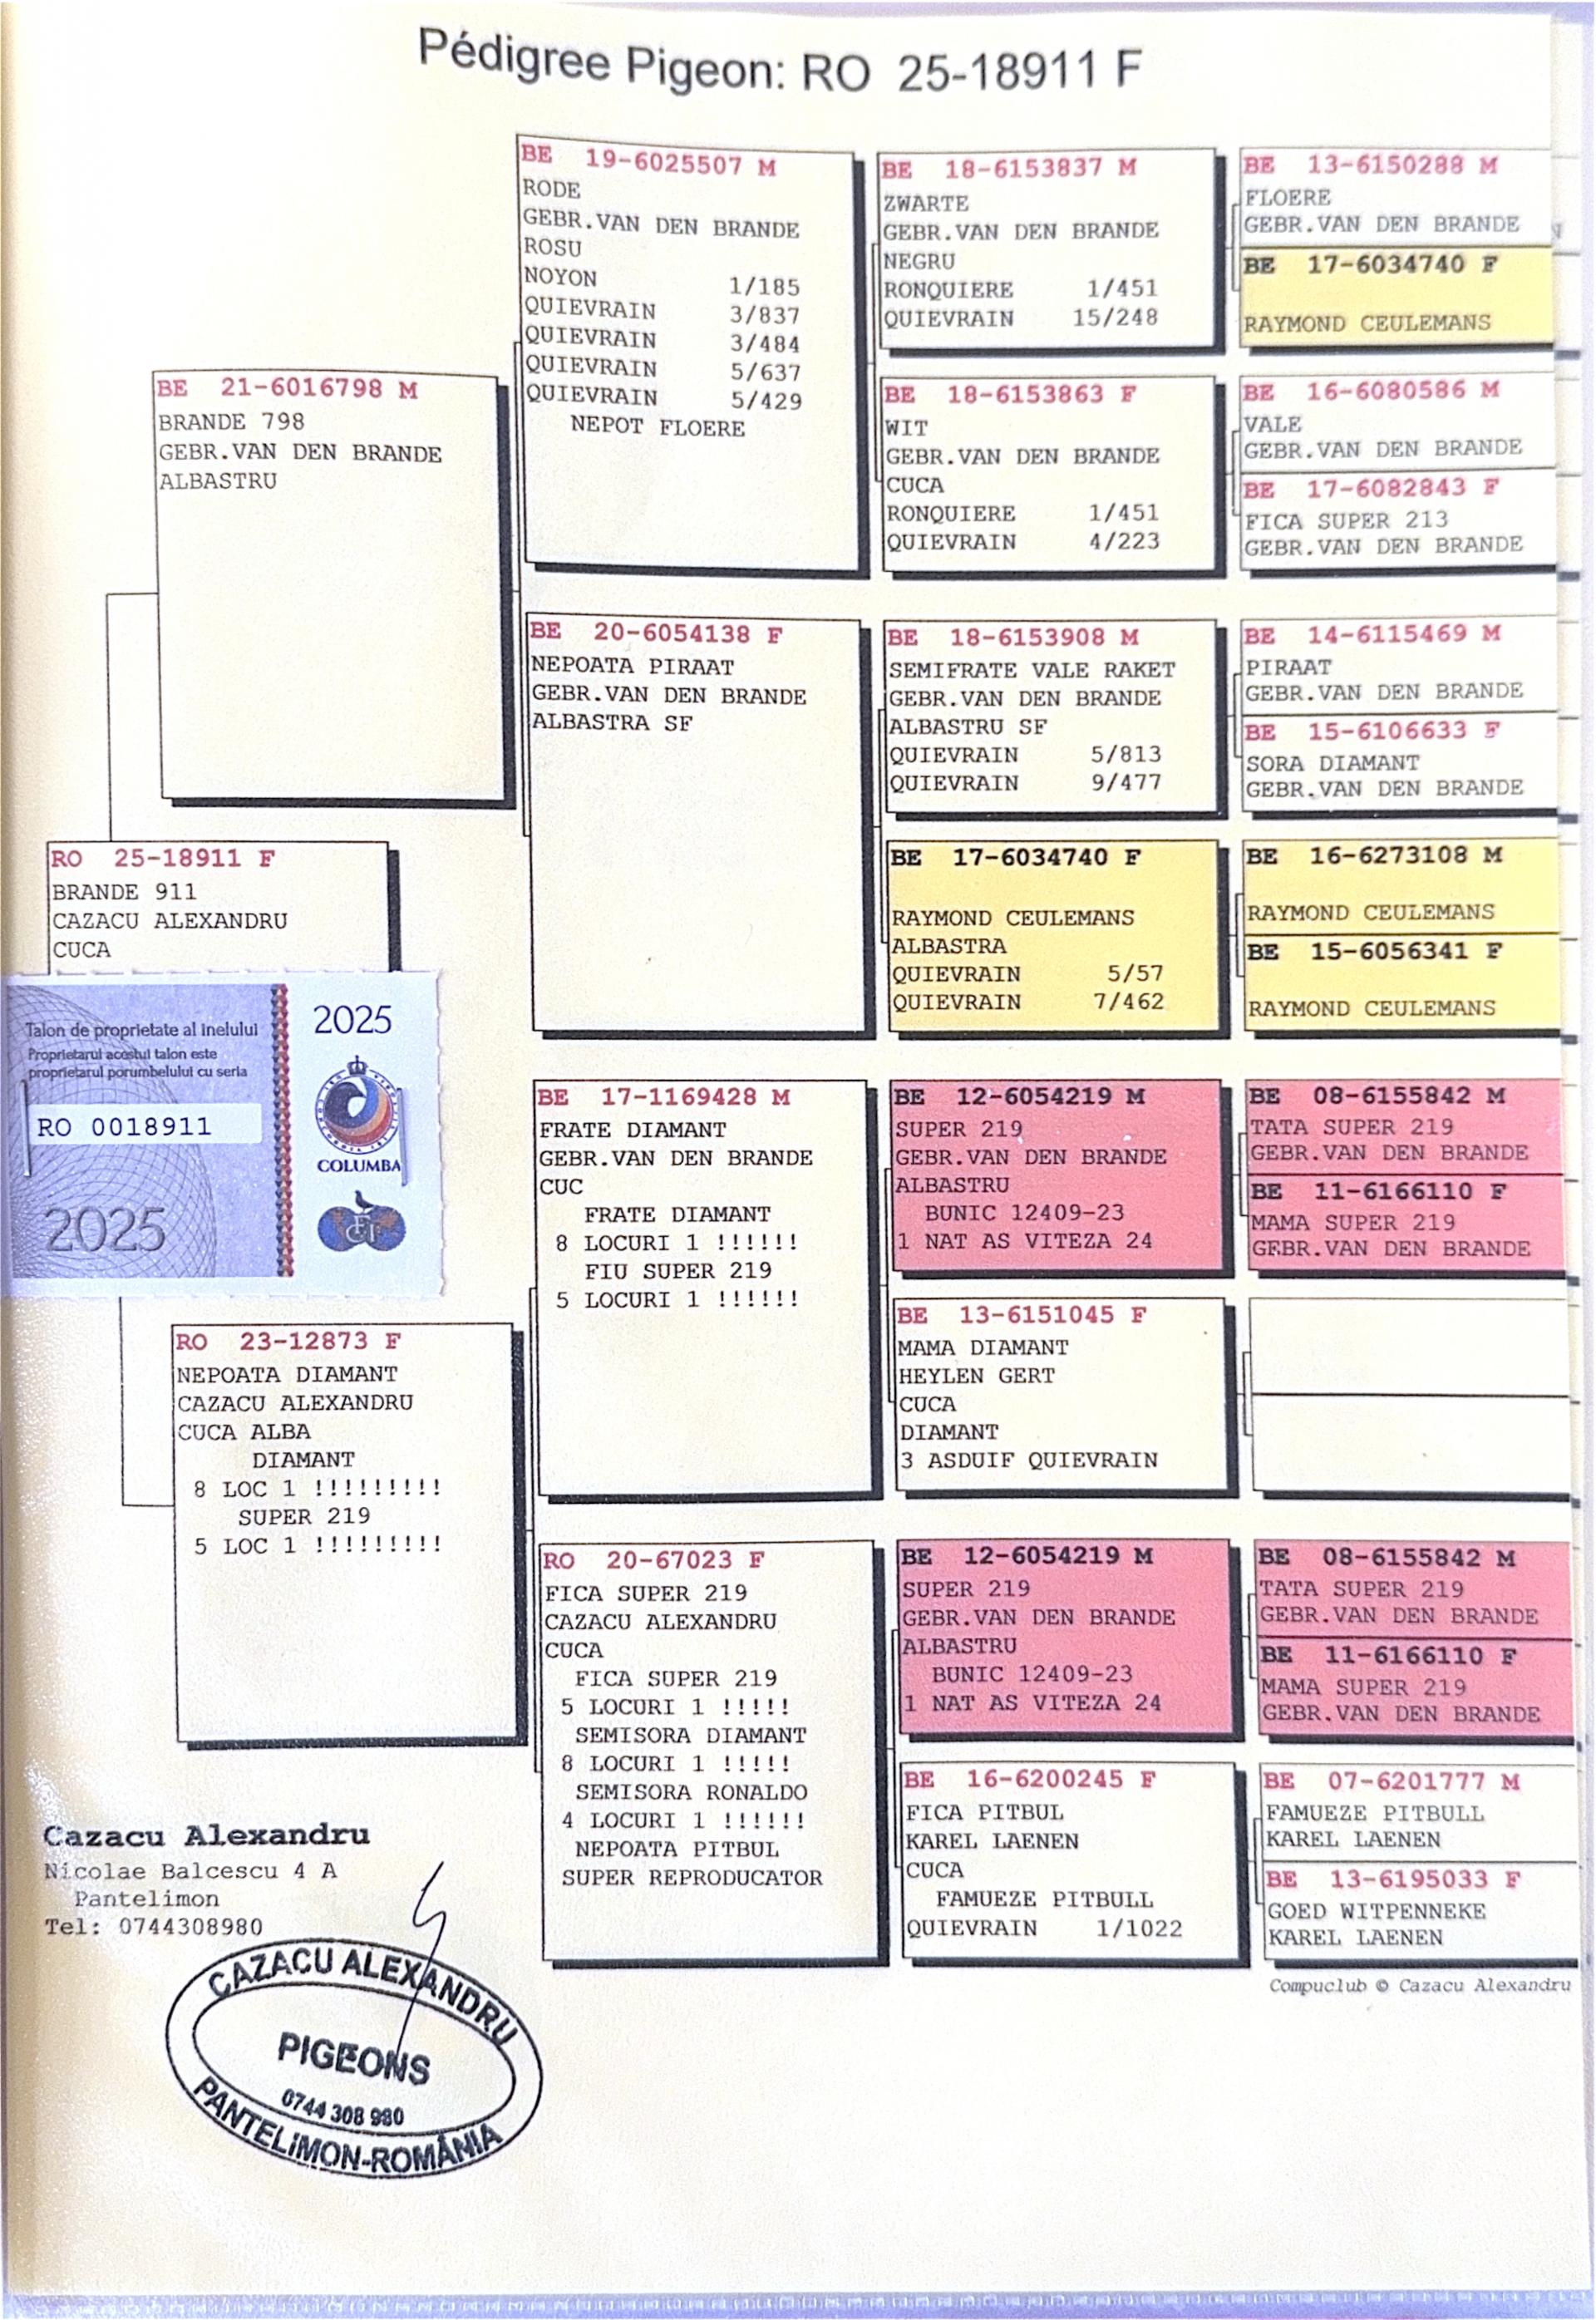 Pédigree Pigeon: RO 25-18911 F
RO 25-18911 F
BRANDE 911
CAZACU ALEXANDRU
CUCA
Talon de proprietate al inelului
Proprietarul acestui talon este
proprietarul porumbelului cu seria
RO 0018911
2025
2025
COLUMBA
FCI
BE 21-6016798 M
BRANDE 798
GEBR.VAN DEN BRANDE
ALBASTRU
RO 23-12873 F
NEPOATA DIAMANT
CAZACU ALEXANDRU
CUCA ALBA
DIAMANT
8 LOC 1 !!!!!!!!!
SUPER 219
5 LOC 1 !!!!!!!!!
BE 19-6025507 M
RODE
GEBR.VAN DEN BRANDE
ROSU
NOYON 1/185
QUIEVRAIN 3/837
QUIEVRAIN 3/484
QUIEVRAIN 5/637
QUIEVRAIN 5/429
NEPOT FLOERE
BE 20-6054138 F
NEPOATA PIRAAT
GEBR.VAN DEN BRANDE
ALBASTRA SF
BE 17-1169428 M
FRATE DIAMANT
GEBR.VAN DEN BRANDE
CUC
FRATE DIAMANT
8 LOCURI 1 !!!!!!
FIU SUPER 219
5 LOCURI 1 !!!!!!
RO 20-67023 F
FICA SUPER 219
CAZACU ALEXANDRU
CUCA
FICA SUPER 219
5 LOCURI 1 !!!!!
SEMISORA DIAMANT
8 LOCURI 1 !!!!!
SEMISORA RONALDO
4 LOCURI 1 !!!!!!
NEPOATA PITBUL
SUPER REPRODUCATOR
BE 18-6153837 M
ZWARTE
GEBR.VAN DEN BRANDE
NEGRU
RONQUIERE 1/451
QUIEVRAIN 15/248
BE 18-6153863 F
WIT
GEBR.VAN DEN BRANDE
CUCA
RONQUIERE 1/451
QUIEVRAIN 4/223
BE 18-6153908 M
SEMIFRATE VALE RAKET
GEBR.VAN DEN BRANDE
ALBASTRU SF
QUIEVRAIN 5/813
QUIEVRAIN 9/477
BE 17-6034740 F
RAYMOND CEULEMANS
ALBASTRA
QUIEVRAIN 5/57
QUIEVRAIN 7/462
BE 12-6054219 M
SUPER 219
GEBR.VAN DEN BRANDE
ALBASTRU
BUNIC 12409-23
1 NAT AS VITEZA 24
BE 13-6151045 F
MAMA DIAMANT
HEYLEN GERT
CUCA
DIAMANT
3 ASDUIF QUIEVRAIN
BE 12-6054219 M
SUPER 219
GEBR.VAN DEN BRANDE
ALBASTRU
BUNIC 12409-23
1 NAT AS VITEZA 24
BE 16-6200245 F
FICA PITBUL
KAREL LAENEN
CUCA
FAMUEZE PITBULL
QUIEVRAIN 1/1022
BE 13-6150288 M
FLOERE
GEBR.VAN DEN BRANDE
BE 17-6034740 F
RAYMOND CEULEMANS
BE 16-6080586 M
VALE
GEBR.VAN DEN BRANDE
BE 17-6082843 F
FICA SUPER 213
GEBR.VAN DEN BRANDE
BE 14-6115469 M
PIRAAT
GEBR.VAN DEN BRANDE
BE 15-6106633 F
SORA DIAMANT
GEBR.VAN DEN BRANDE
BE 16-6273108 M
RAYMOND CEULEMANS
BE 15-6056341 F
RAYMOND CEULEMANS
BE 08-6155842 M
TATA SUPER 219
GEBR.VAN DEN BRANDE
BE 11-6166110 F
MAMA SUPER 219
GEBR.VAN DEN BRANDE
BE 08-6155842 M
TATA SUPER 219
GEBR.VAN DEN BRANDE
BE 11-6166110 F
MAMA SUPER 219
GEBR.VAN DEN BRANDE
BE 07-6201777 M
FAMUEZE PITBULL
KAREL LAENEN
BE 13-6195033 F
GOED WITPENNEKE
KAREL LAENEN
Compuclub © Cazacu Alexandru
Cazacu Alexandru
Nicolae Balcescu 4 A
Pantelimon
Tel: 0744308980
CAZACU ALEXANDRU
PIGEONS
0744 308 980
PANTELIMON-ROMÂNIA